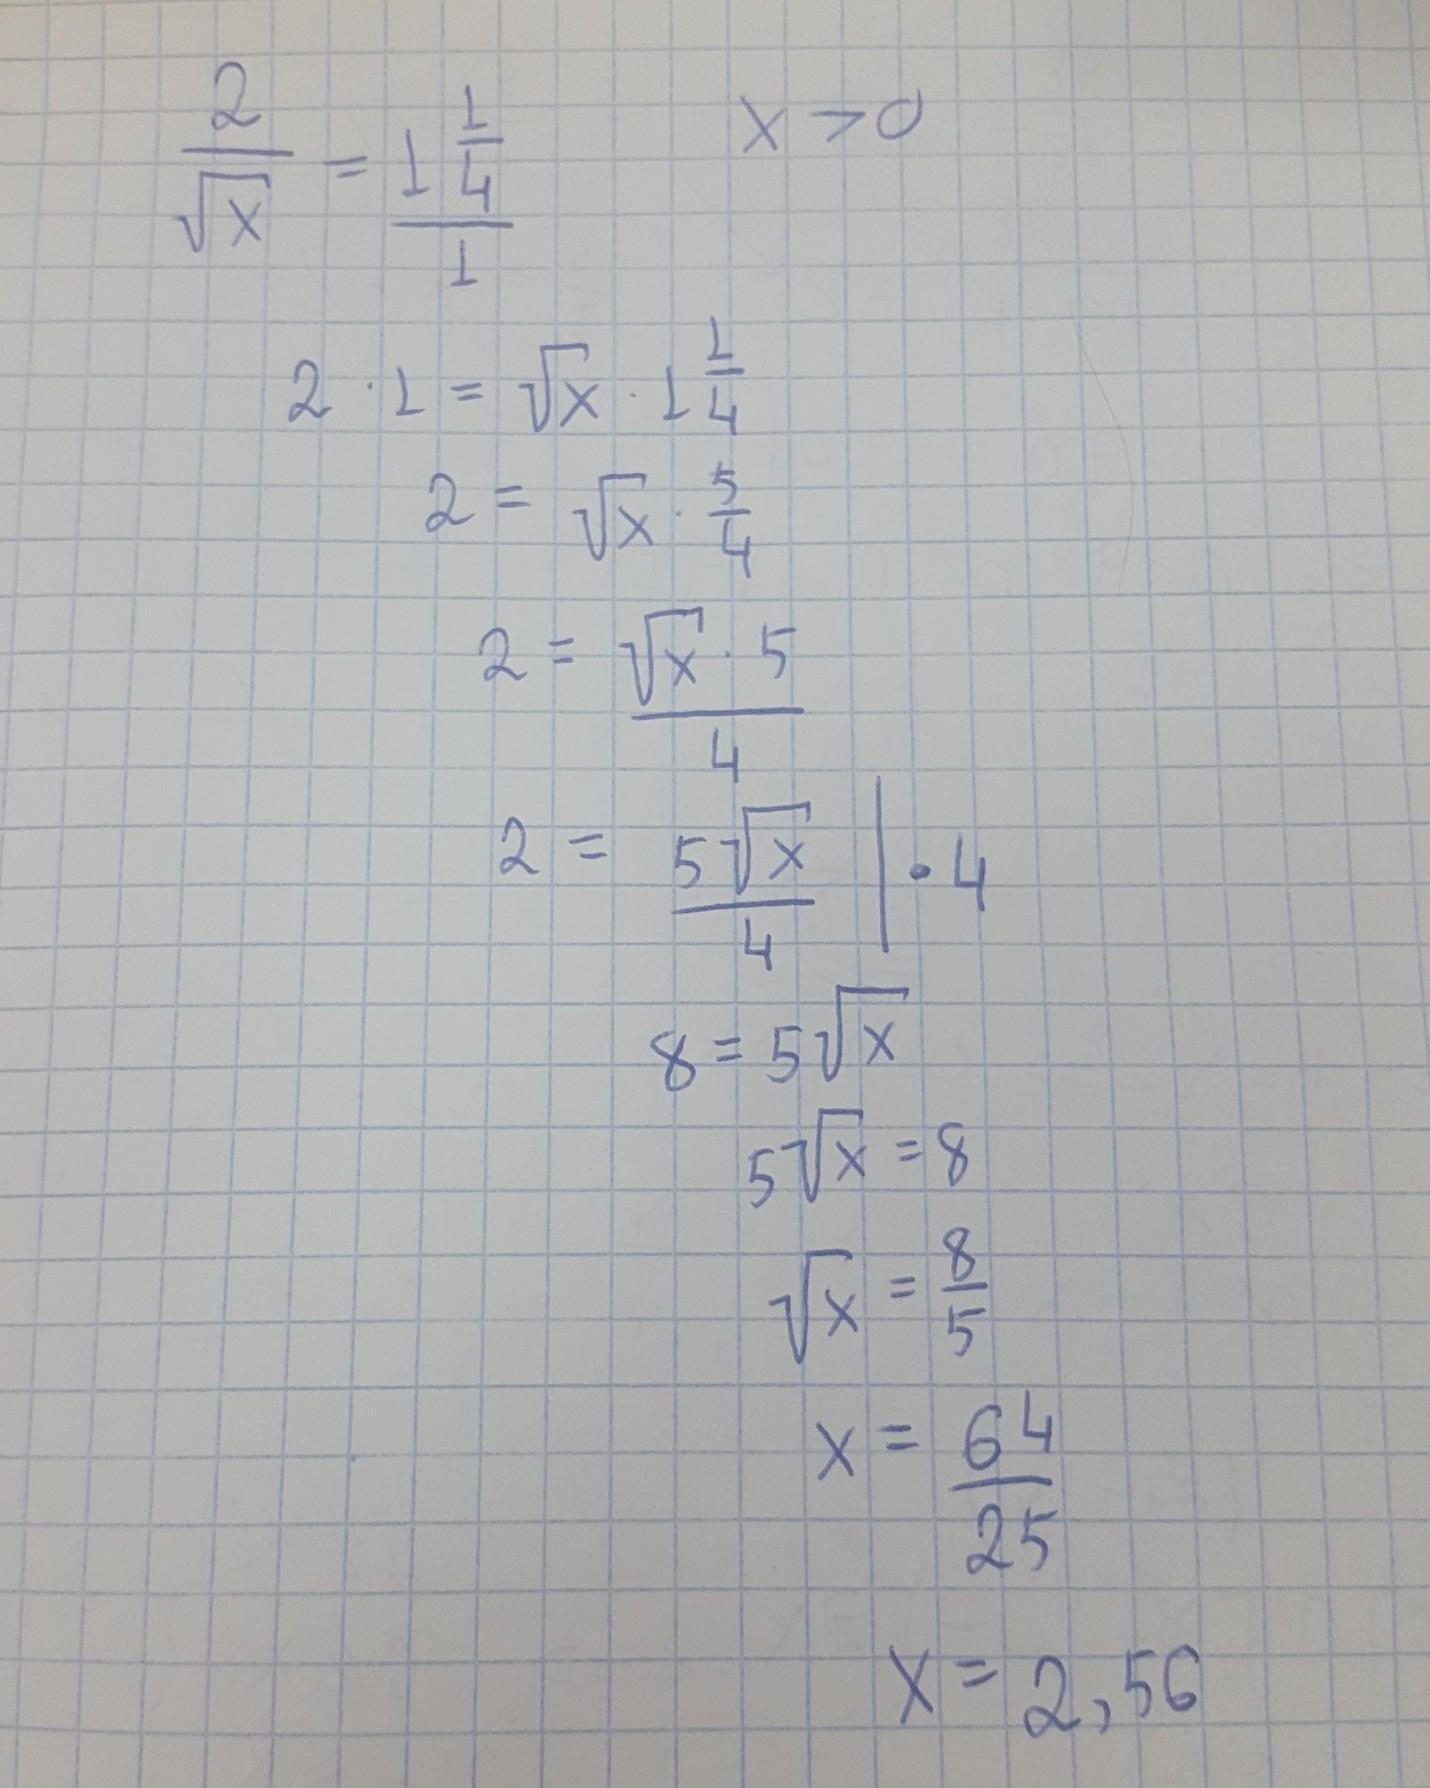 2/√x = 1 1/4 / 1 x > 0
2 · 1 = √x · 1 1/4
2 = √x · 5/4
2 = √x · 5 / 4
2 = 5√x / 4 | · 4
8 = 5√x
5√x = 8
√x = 8/5
x = 64/25
x = 2,56